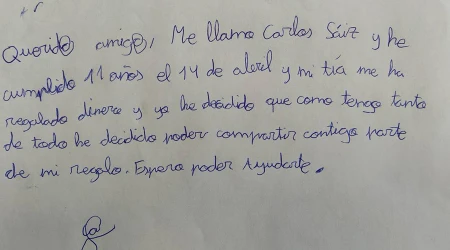 Querid@ amig@, Me llamo Carlos Sáiz y he
cumplido 11 años el 14 de abril y mi tía me ha
regalado dinero y yo he decidido que como tengo tanto
de todo he decidido poder compartir contigo parte
de mi regalo. Espero poder Ayudarte.